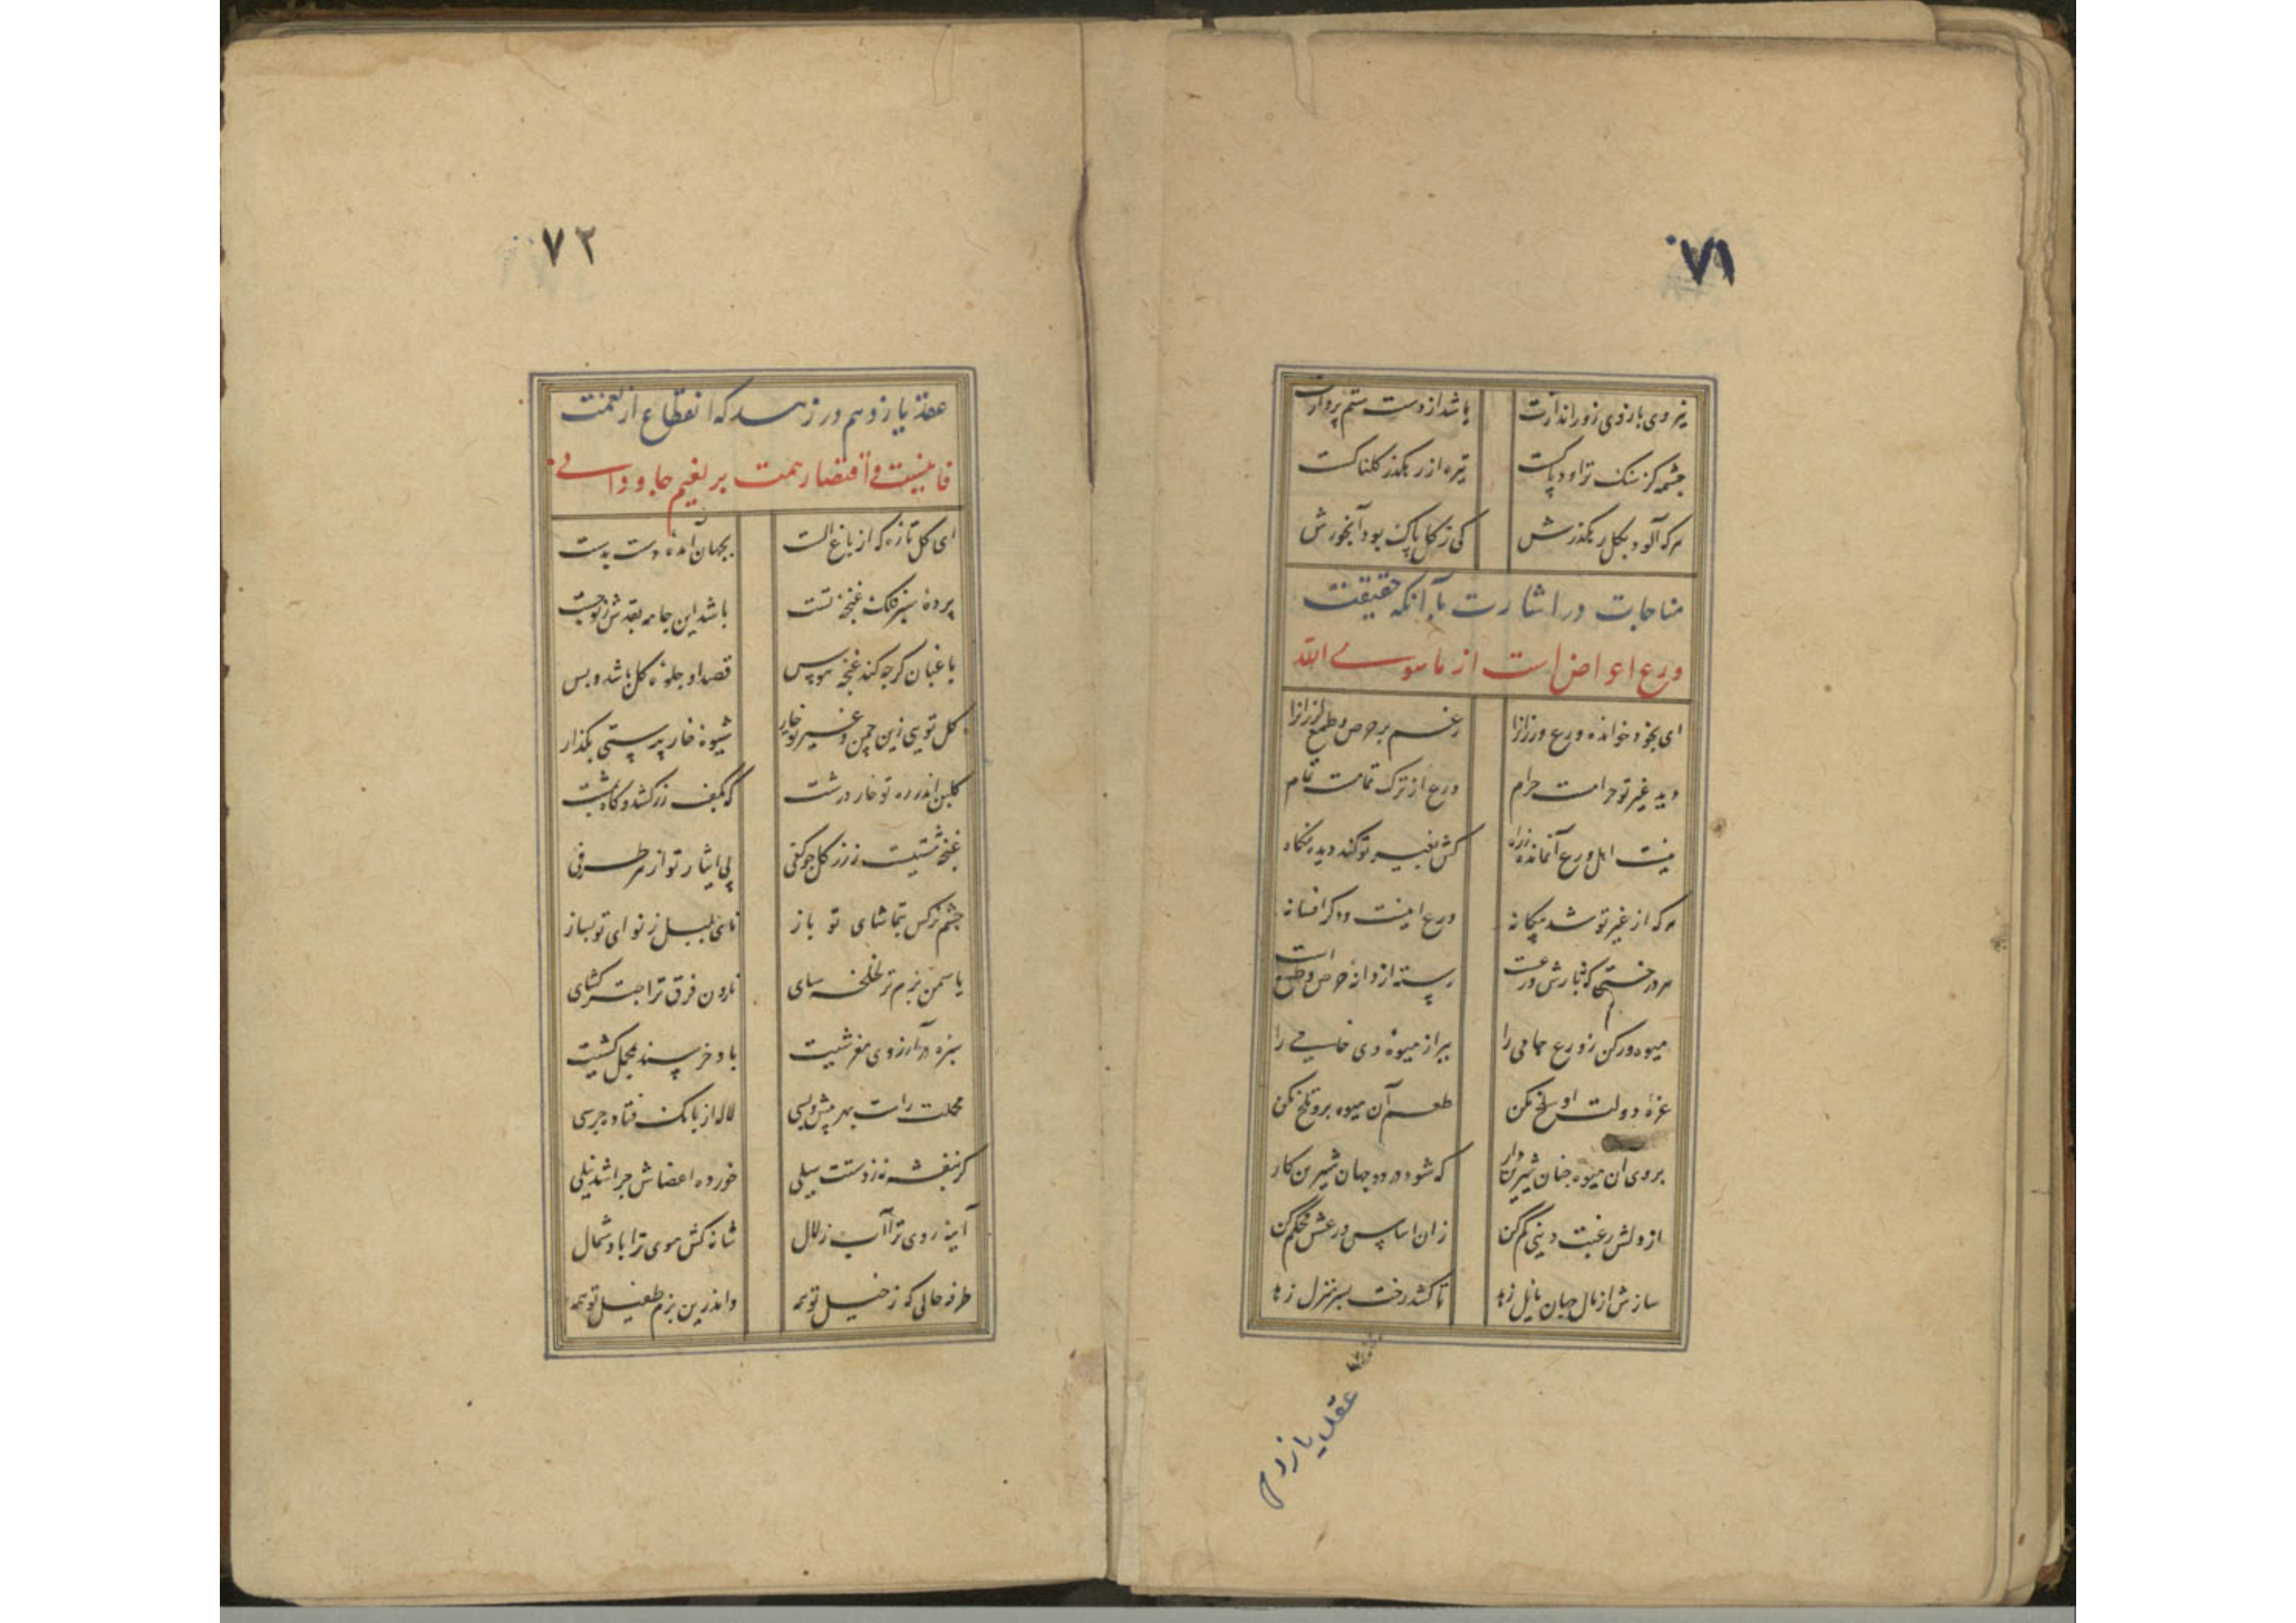 ۷۱
نیروی بازوی زور اندازت باشد از دست ستم پردازت
چشمه کز سنک تراود پاکست تیره از رهکذر کلناکست
هرکه آلود بکل رهکذرش کی ز کل پاک بود آبخورش
مناجات در اشارت بآنکه حقیقت
ورع اعراض است از ماسوی الله
ای بخود خوانده ورع ورزانرا زغم بر حرص و طمع لرزانرا
دید غیر تو حرامست حرام ورع از ترک تمامست تمام
نیست اهل ورع آنمانده ز راه کش بغیر تو کند دیده نکاه
هرکه از غیر تو شد بیکانه ورع اینست و دکر افسانه
هر درختی که نبارش ورعست رسته از دانه حرص و طمع است
میوه ور کن ز ورع جامی را ببر از میوه وی خامی را
غره دولت او سلخ مکن طعم آن میوه برو تلخ مکن
بروی آن میوه چنان شیرین دار که شود در دو جهان شیرین کار
از دلش رغبت دنیی کم کن زان اساس ورعش محکم کن
سازش از مال جهان مایل زهد تا کشد رخت بسر منزل زهد
عقد یازدهم
۷۲
عقد یازدهم در زهد که انقطاع از نعمت
فانیست و اقتصار همت بر نعیم جاودانی
ای کل تازه که از باغ الست بجهان آمده دست بدست
پرده سبز فلک غنچه تست باشد این جامه بقدش ز تو چست
باغبان کرچه کند غنچه هوس قصد او جلوه کل باشد و بس
کل تویی زین چمن و غیر تو خار شیوه خار پرستی بکذار
کلبن اندر ره تو خار درشت که بکف زر کشد و کاه بمشت
غنچه مشتیست ز زر کل چو کفی پی ایثار تو از هر طرفی
چشم نرکس بتماشای تو باز نای بلبل ز نوای تو بساز
یاسمن بزم ترا لخلخه سای نارون فرق ترا چتر کشای
سبزه در آرزوی مفرشیت باد خرسند بمحمل کشیت
محملت راست بهر پیش و پسی لاله از بانک فتاده جرسی
کر بنفشه نه ز دستت سیلی خورده اعضاش چرا شد نیلی
آینه روی ترا آب زلال شانه کش موی ترا باد شمال
طرفه حالی که ز خیل تو همه واندرین بزم طفیل تو همه